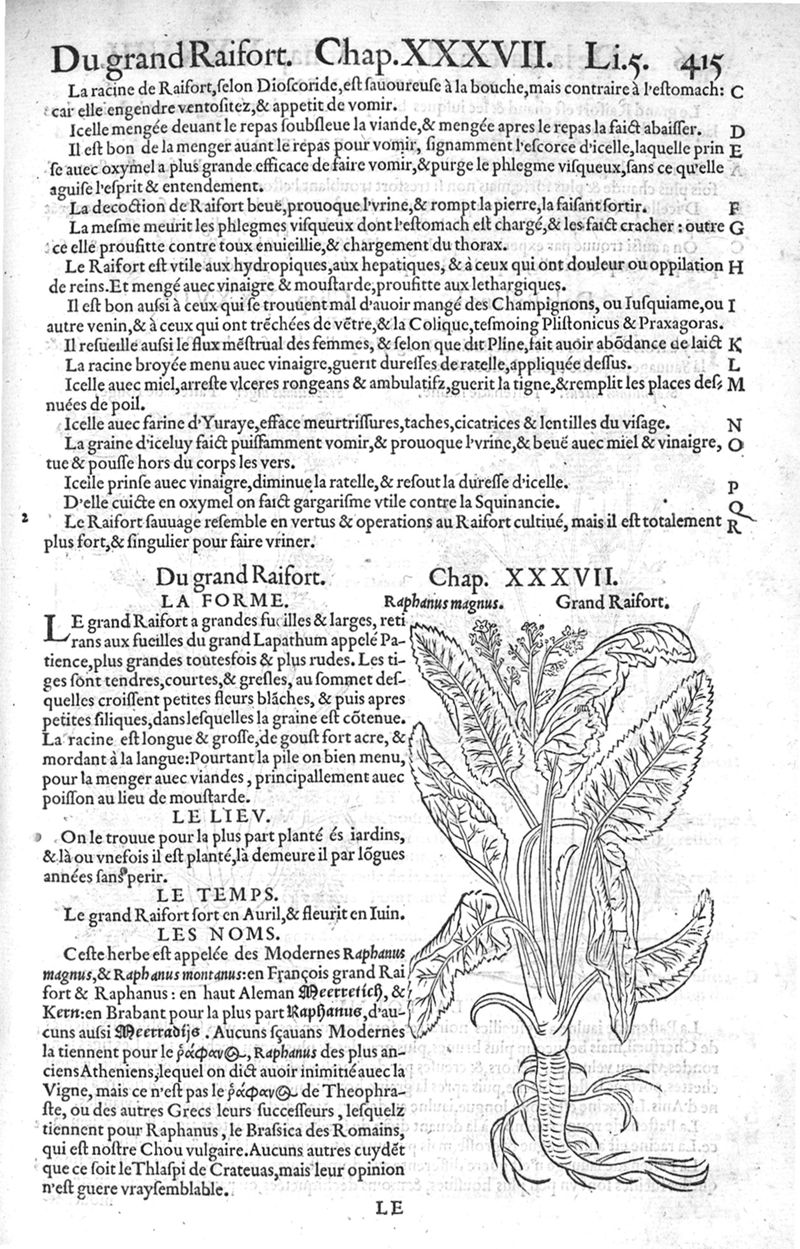 Du grand Raifort. Chap. XXXVII. Li.5. 415
La racine de Raifort, ſelon Dioſcoride, eſt ſauoureuſe à la bouche, mais contraire à l'eſtomach: C
car elle engendre ventoſitez, & appetit de vomir.
Icelle mengée deuant le repas ſoubſleue la viande, & mengée apres le repas la faict abaiſſer. D
Il eſt bon de la menger auant le repas pour vomir, ſignamment l'eſcorce d'icelle, laquelle prin E
ſe auec oxymel a plus grande efficace de faire vomir, & purge le phlegme viſqueux, ſans ce qu'elle
aguiſe l'eſprit & entendement.
La decoction de Raifort beuë, prouoque l'vrine, & rompt la pierre, la faiſant ſortir. F
La meſme meurit les phlegmes viſqueux dont l'eſtomach eſt chargé, & les faict cracher : outre G
ce elle proufitte contre toux enuieillie, & chargement du thorax.
Le Raifort eſt vtile aux hydropiques, aux hepatiques, & à ceux qui ont douleur ou oppilation H
de reins. Et mengé auec vinaigre & mouſtarde, proufitte aux lethargiques.
Il eſt bon auſſi à ceux qui ſe trouuent mal d'auoir mangé des Champignons, ou Iuſquiame, ou I
autre venin, & à ceux qui ont trẽchées de vẽtre, & la Colique, teſmoing Pliſtonicus & Praxagoras.
Il reſueille auſſi le flux mẽſtrual des femmes, & ſelon que dit Pline, fait auoir abõdance de laict K
La racine broyée menu auec vinaigre, guerit dureſſes de ratelle, appliquée deſſus. L
Icelle auec miel, arreſte vlceres rongeans & ambulatifz, guerit la tigne, & remplit les places deſ- M
nuées de poil.
Icelle auec farine d'Yuraye, efface meurtriſſures, taches, cicatrices & lentilles du viſage. N
La graine d'iceluy faict puiſſamment vomir, & prouoque l'vrine, & beuë auec miel & vinaigre, O
tue & pouſſe hors du corps les vers.
Icelle prinſe auec vinaigre, diminue la ratelle, & reſout la dureſſe d'icelle. P
D'elle cuicte en oxymel on faict gargariſme vtile contre la Squinancie. Q
2 Le Raifort ſauuage reſemble en vertus & operations au Raifort cultiué, mais il eſt totalement R
plus fort, & ſingulier pour faire vriner.
Du grand Raifort. Chap. XXXVII.
LA FORME.
LE grand Raifort a grandes fueilles & larges, reti
rans aux fueilles du grand Lapathum appelé Pa-
tience, plus grandes toutesfois & plus rudes. Les ti-
ges ſont tendres, courtes, & greſles, au ſommet deſ-
quelles croiſſent petites fleurs blãches, & puis apres
petites ſiliques, dans leſquelles la graine eſt cõtenue.
La racine eſt longue & groſſe, de gouſt fort acre, &
mordant à la langue: Pourtant la pile on bien menu,
pour la menger auec viandes, principallement auec
poiſſon au lieu de mouſtarde.
LE LIEV.
On le trouue pour la plus part planté és iardins,
& là ou vnefois il eſt planté, là demeure il par lõgues
années ſans perir.
LE TEMPS.
Le grand Raifort ſort en Auril, & fleurit en Iuin.
LES NOMS.
Ceſte herbe eſt appelée des Modernes Raphanus
magnus, & Raphanus montanus: en François grand Rai
fort & Raphanus : en haut Aleman Meerretich, &
Kern: en Brabant pour la plus part Raphanus, d'au-
cuns auſſi Meerradijs. Aucuns ſçauans Modernes
la tiennent pour le ῥάφανος, Raphanus des plus an-
ciens Atheniens, lequel on dict auoir inimitié auec la
Vigne, mais ce n'eſt pas le ῥάφανος de Theophra-
ſte, ou des autres Grecs leurs ſucceſſeurs, leſquelz
tiennent pour Raphanus, le Braſſica des Romains,
qui eſt noſtre Chou vulgaire. Aucuns autres cuydẽt
que ce ſoit le Thlaſpi de Crateuas, mais leur opinion
n'eſt guere vrayſemblable.
Raphanus magnus. Grand Raifort.
LE